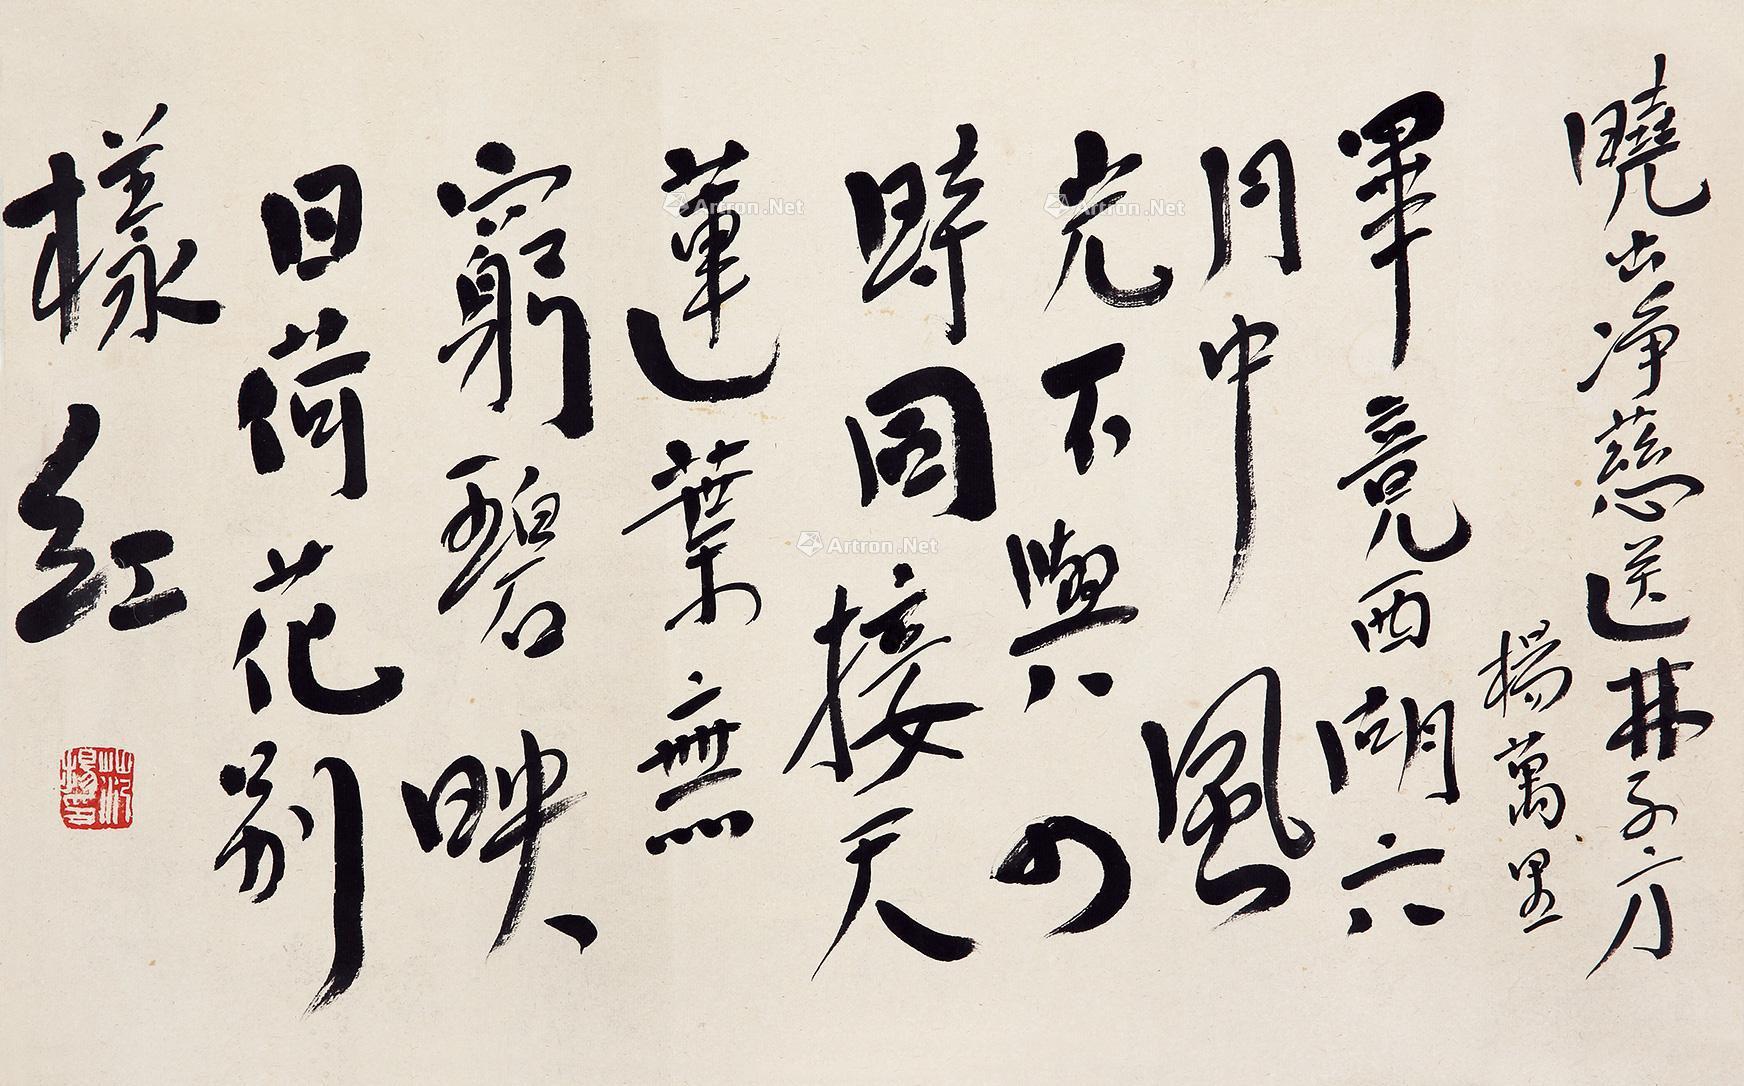 曉出净慈送林子方
楊萬里
畢竟西湖六
月中風
光不與四
時同接天
蓮葉無
窮碧映
日荷花別
樣紅
Artron.Net
Artron.Net
Artron.Net